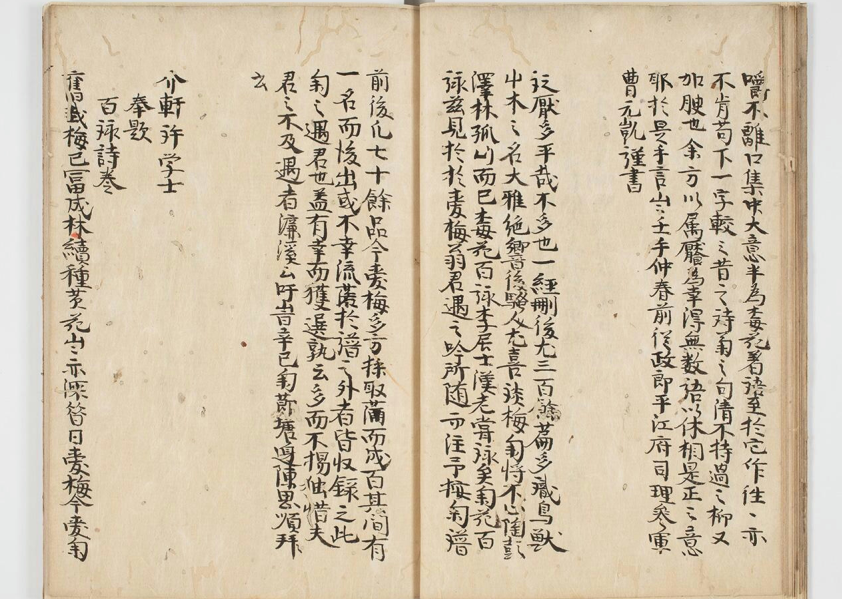 嚼不離口集中大意半為梅花著語至於它作往〻亦
不肯苟下一字較之昔之詩菊之句清不持過之柳又
加腴也余方以屬厭為幸得無数語以休相是正之意
耶於是乎言山〻壬子仲春前從政郎平江府司理參軍
曹元凱謹書
詩厭多乎哉不多也一經刪後尤三百餘篇多識鳥獸
屮木之名大雅絶響後騷人尤喜談梅菊將不止陶彭
澤林孤山而已梅花百詠李居士漢老嘗詠矣菊花百
詠茲見於於愛梅翁君遇之吟所随而注予按菊譜
前後凡七十餘品今愛梅多方採取蒲而成百其間有
一名而後出或不幸流落於譜之外者皆収録之此
菊之遇君也盖有幸而獲選孰云多而不揚独惜夫
君之不及遇者濂溪公吁峕辛巳菊節塘邊陳思順拜
玄
介軒許学士
奉題
百詠詩巻
舊哉梅已冨成林續種黄花山〻亦深昝日愛梅今愛菊